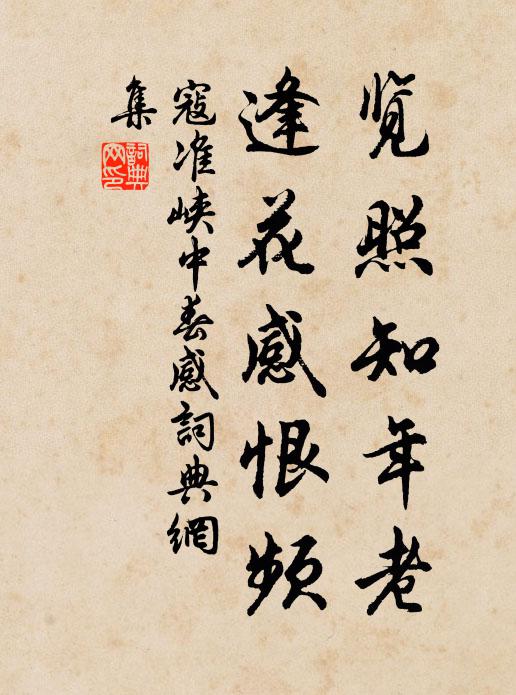 览照知年老
逢花感恨频
寇准峡中春感词典網
集
詞典網印